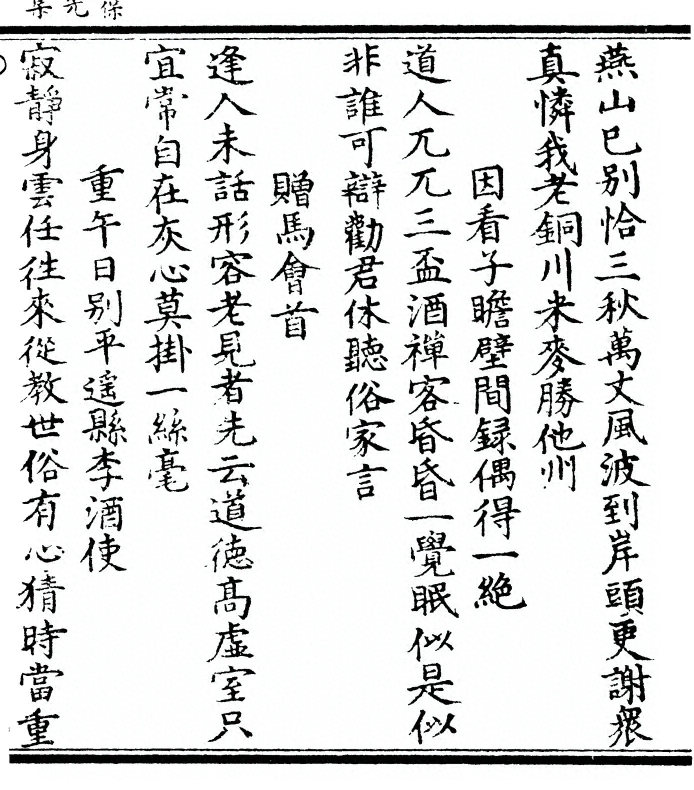 燕山已别恰三秋萬丈風波到岸頭更謝衆
真憐我老銅川米麥勝他州
因看子瞻壁間録偶得一絶
道人兀兀三盃酒禪客昏昏一覺眠似是似
非誰可辯勸君休聽俗家言
贈馬會首
逢人未話形容老見者先云道德高虚室只
宜常自在灰心莫掛一絲毫
重午日别平遥縣李酒使
寂靜身雲任往來從教世俗有心猜時當重